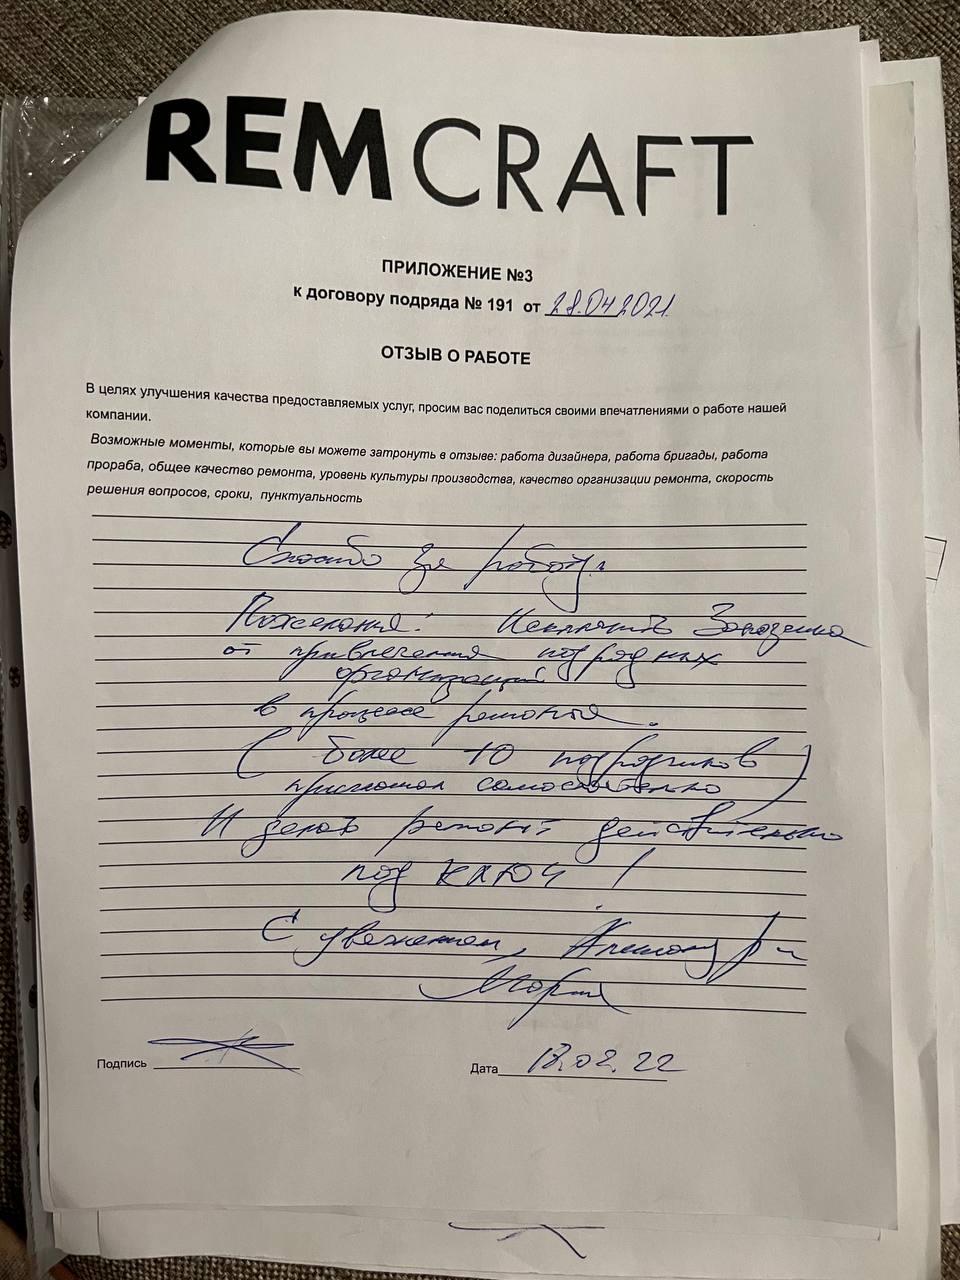 REMCRAFT
ПРИЛОЖЕНИЕ №3
к договору подряда № 191 от 28.04.2021
ОТЗЫВ О РАБОТЕ
В целях улучшения качества предоставляемых услуг, просим вас поделиться своими впечатлениями о работе нашей
компании.
Возможные моменты, которые вы можете затронуть в отзыве: работа дизайнера, работа бригады, работа
прораба, общее качество ремонта, уровень культуры производства, качество организации ремонта, скорость
решения вопросов, сроки, пунктуальность
Спасибо за работу.
Пожелания: Исключить Заказчика
от привлечения подрядных
организаций
в процессе ремонта.
( более 10 подрядчиков )
самостоятельно
И делать ремонт действительно
под ключ !
С уважением, Александр и
Мария
Подпись
Дата 18.02.22